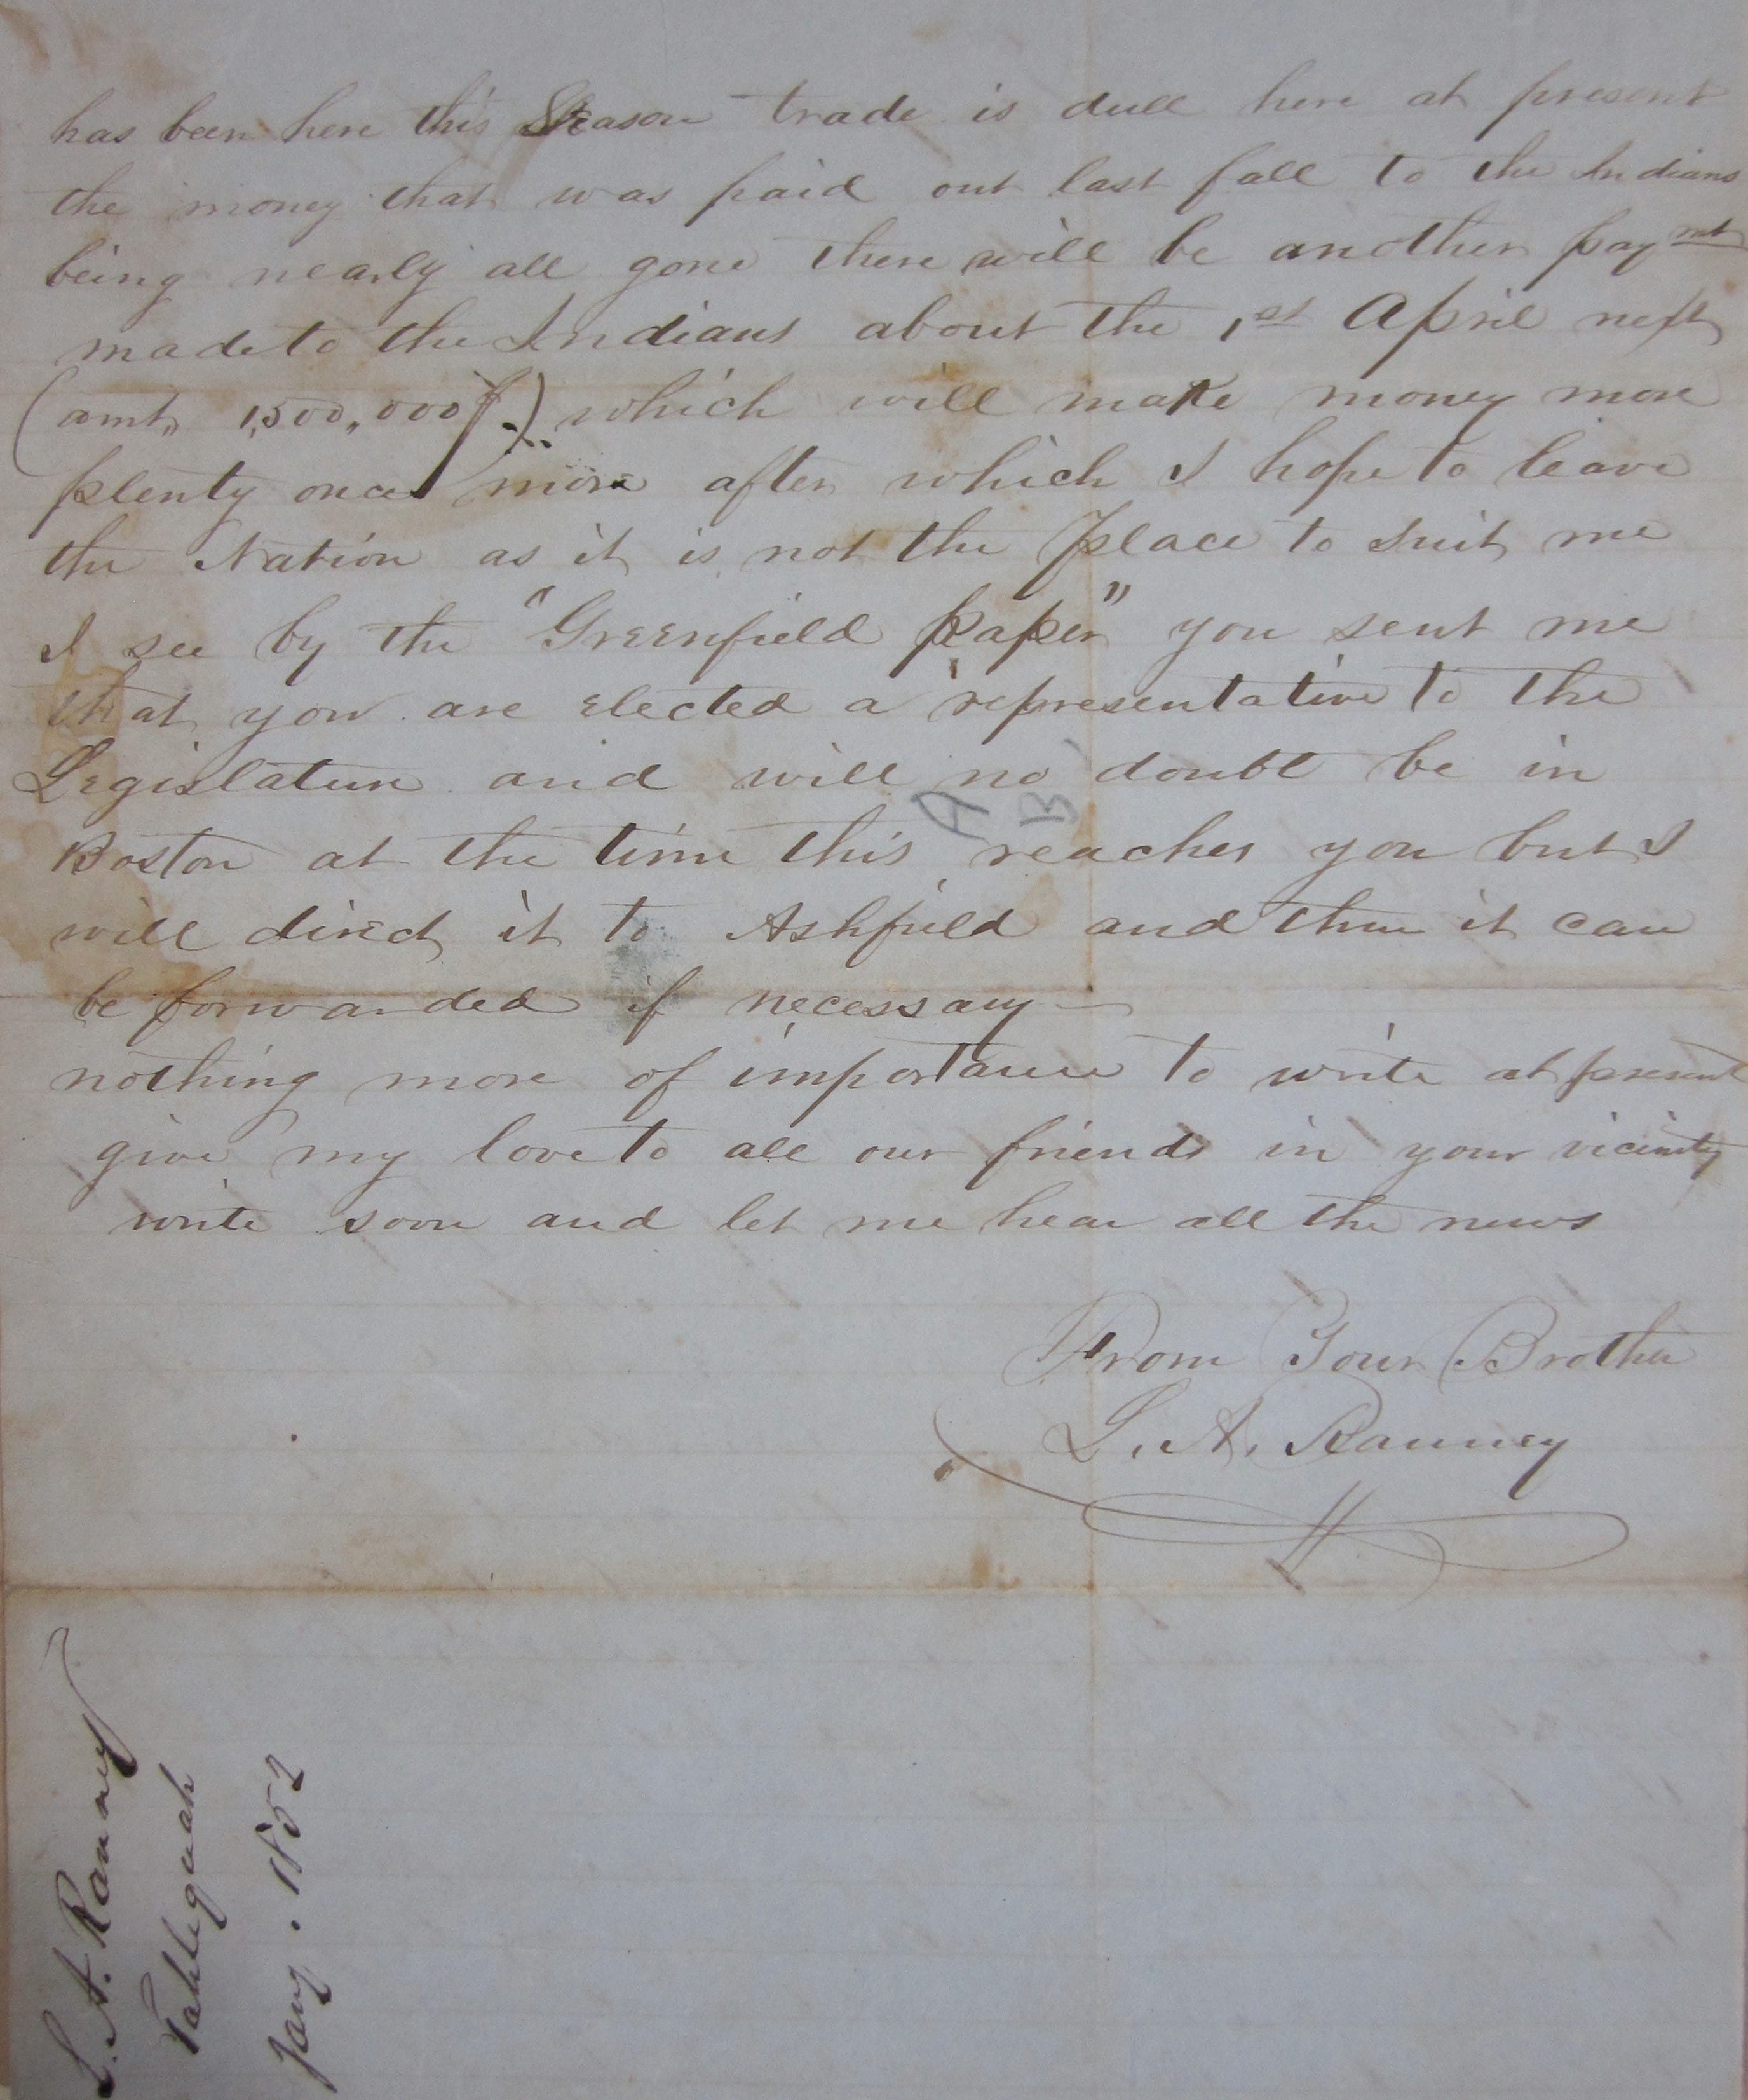 has been here this Season trade is dull here at present
the money that was paid out last fall to the Indians
being nearly all gone there will be another paymt
made to the Indians about the 1st April next
(amt, 1,500,000$.) which will make money more
plenty once more after which I hope to leave
the Nation as it is not the place to suit me
I see by the "Greenfield paper" you sent me
that you are elected a representative to the
Legislature and will no doubt be in
A B
Boston at the time this reaches you but I
will direct it to Ashfield and then it can
be forwarded if necessary —
nothing more of importance to write at present
give my love to all our friends in your vicinity
write soon and let me hear all the news
From Your Brother
L. A. Ranney
L. A. Ranney
Tahlequah
Jany. 1852